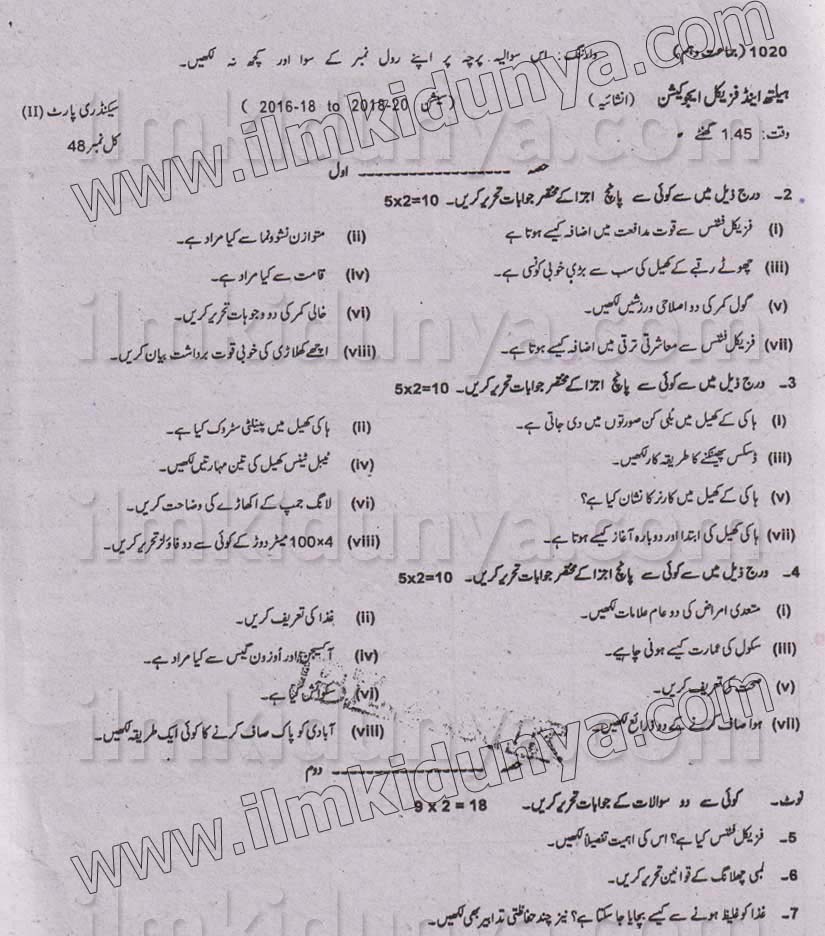 1020 (جماعت دہم) وارننگ: اس سوالیہ پرچہ پر اپنے رول نمبر کے سوا اور کچھ نہ لکھیں۔
ہیلتھ اینڈ فزیکل ایجوکیشن (انشائیہ) (سیشن 2016-18 to 2018-20) سیکنڈری پارٹ (II)
وقت: 1.45 گھنٹے کل نمبر 48
حصہ ------------------ اول
2۔ درج ذیل میں سے کوئی سے پانچ اجزا کے مختصر جوابات تحریر کریں۔ 5x2=10
(i) فزیکل فٹنس سے قوت مدافعت میں اضافہ کیسے ہوتا ہے (ii) متوازن نشوونما سے کیا مراد ہے۔
(iii) چھوٹے رقبے کے کھیل کی سب سے بڑی خوبی کونسی ہے۔ (iv) قامت سے کیا مراد ہے۔
(v) گول کمر کی دو اصلاحی ورزشیں لکھیں۔ (vi) خالی کمر کی دو وجوہات تحریر کریں۔
(vii) فزیکل فٹنس سے معاشرتی ترقی میں اضافہ کیسے ہوتا ہے۔ (viii) اچھے کھلاڑی کی خوبی قوت برداشت بیان کریں۔
3۔ درج ذیل میں سے کوئی سے پانچ اجزا کے مختصر جوابات تحریر کریں۔ 5x2=10
(i) ہاکی کے کھیل میں بُلی کن صورتوں میں دی جاتی ہے۔ (ii) ہاکی کھیل میں پینلٹی سٹروک کیا ہے۔
(iii) ڈسکس پھینکنے کا طریقہ کار لکھیں۔ (iv) ٹیبل ٹینس کھیل کی تین مہارتیں لکھیں۔
(v) ہاکی کے کھیل میں کارنر کا نشان کیا ہے؟ (vi) لانگ جمپ کے اکھاڑے کی وضاحت کریں۔
(vii) ہاکی کھیل کی ابتدا اور دوبارہ آغاز کیسے ہوتا ہے۔ (viii) 100x4 میٹر دوڑ کے کوئی سے دو فاؤلز تحریر کریں۔
4۔ درج ذیل میں سے کوئی سے پانچ اجزا کے مختصر جوابات تحریر کریں۔ 5x2=10
(i) متعدی امراض کی دو عام علامات لکھیں۔ (ii) غذا کی تعریف کریں۔
(iii) سکول کی عمارت کیسے ہونی چاہیے۔ (iv) آکسیجن اور اُوزون گیس سے کیا مراد ہے۔
(v) صحت کی تعریف کریں۔ (vi) سکوائش کیا ہے۔
(vii) ہوا صاف کرنے کے دو ذرائع لکھیں۔ (viii) آبادی کو پاک صاف کرنے کا کوئی ایک طریقہ لکھیں۔
حصہ ------------------ دوم
نوٹ۔ کوئی سے دو سوالات کے جوابات تحریر کریں۔ 9 x 2 = 18
5۔ فزیکل فٹنس کیا ہے؟ اس کی اہمیت تفصیلاً لکھیں۔
6۔ لمبی چھلانگ کے قوانین تحریر کریں۔
7۔ غذا کو غلیظ ہونے سے کیسے بچایا جا سکتا ہے؟ نیز چند حفاظتی تدابیر بھی لکھیں۔
www.ilmkidunya.com
ilmkidunya.com
ilmkidunya.com
ilmkidunya.com
www.ilmkidunya.com
ilmkidunya.com
ilmkidunya.com